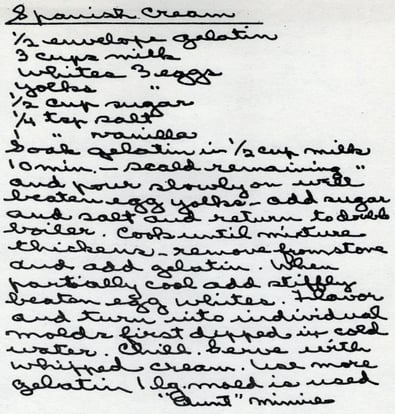 Spanish Cream
1/2 envelope gelatin
3 cups milk
Whites 3 eggs
Yolks "
1/2 cup sugar
1/4 tsp salt
1 " vanilla
Soak gelatin in 1/2 cup milk
10 min. - scald remaining "
and pour slowly on well
beaten egg yolks - add sugar
and salt and return to double
boiler. Cook until mixture
thickens - remove from stone
and add gelatin. When
partially cool add stiffly
beaten egg whites. Flavor
and turn into individual
molds first dipped in cold
water. Chill. Serve with
whipped cream. Use more
gelatin 1 lg. mold is used
"Aunt" Minnie